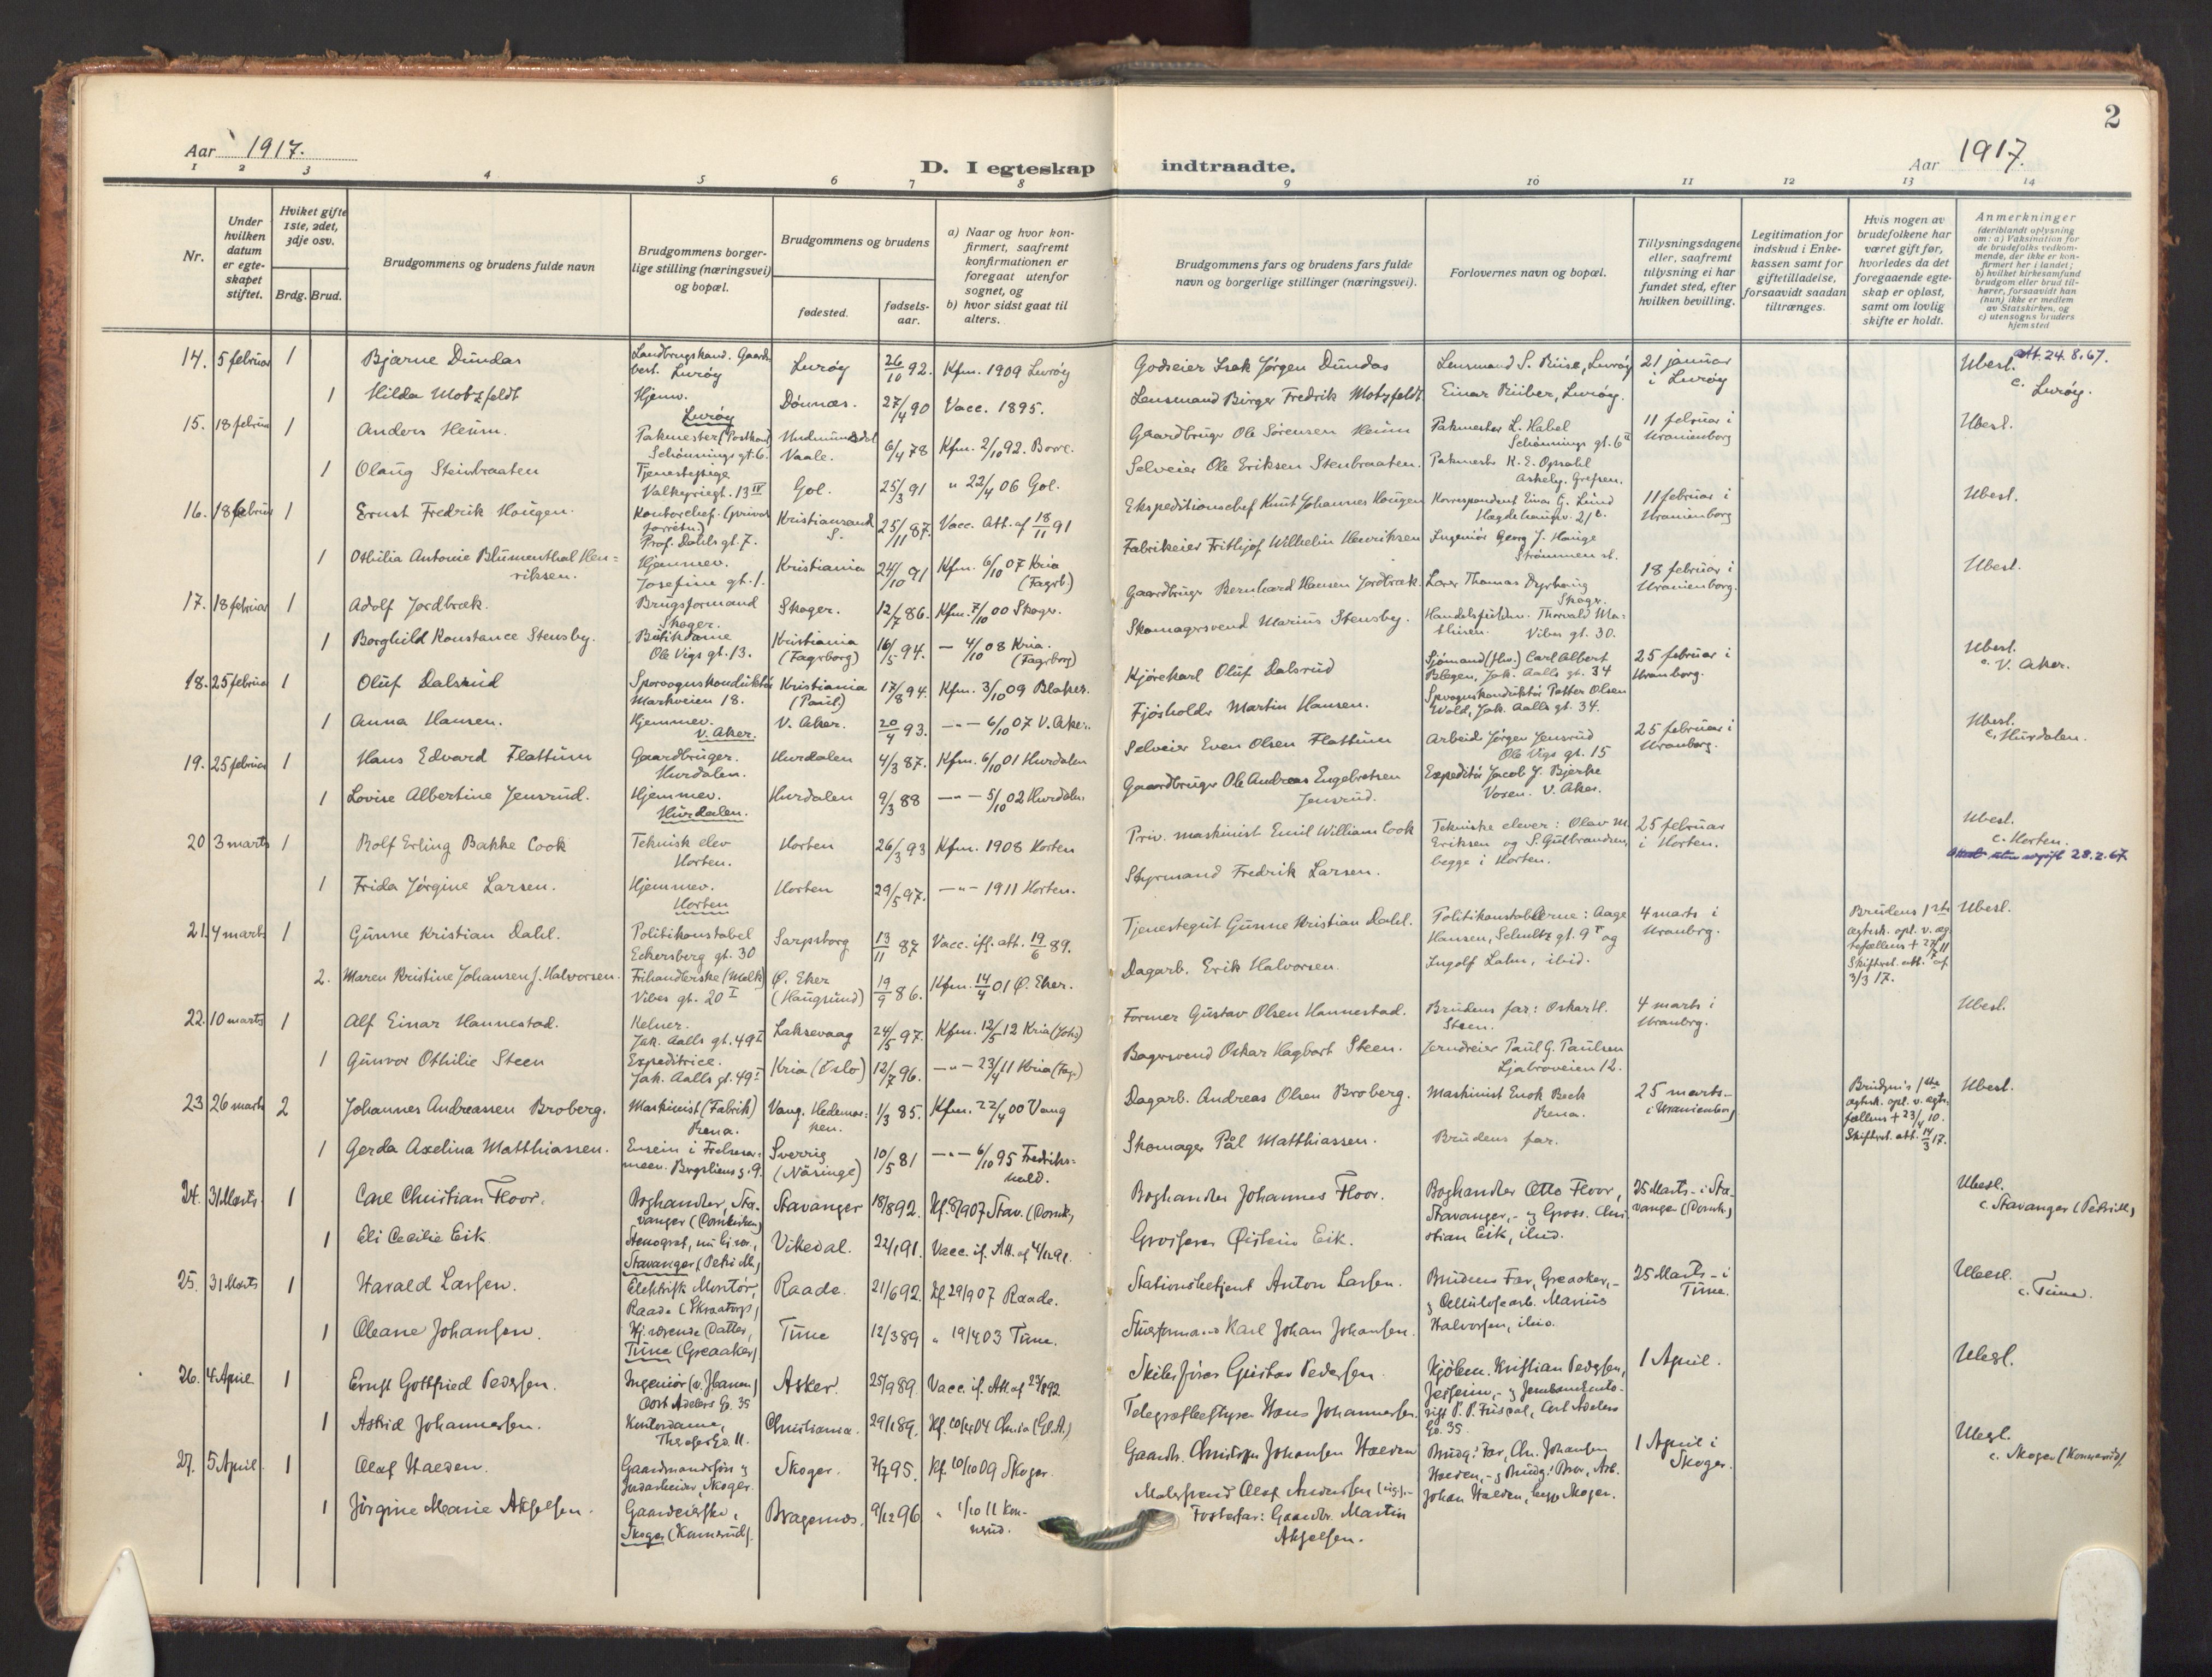 Aar 1917.
D. I egteskap indtraadte.
Aar 1917.
2
1 2 3 4 5 6 7 8 9 10 11 12 13 14
Nr.
Under hvilken datum er egteskapet stiftet.
Hviket gifte 1ste, 2det, 3dje osv.
Brdg. Brud.
Brudgommens og brudens fulde navn
Brudgommens borgerlige stilling (næringsvei) og bopæl.
Brudgommens og brudens
fødested.
fødselsaar.
a) Naar og hvor konfirmert, saafremt konfirmationen er foregaat utenfor sognet, og
b) hvor sidst gaat til alters.
Brudgommens fars og brudens fars fulde navn og borgerlige stillinger (næringsvei).
Forlovernes navn og bopæl.
Tillysningsdagene eller, saafremt tillysning ei har fundet sted, efter hvilken bevilling.
Legitimation for indskud i Enkekassen samt for giftetilladelse, forsaavidt saadan tiltrænges.
Hvis nogen av brudefolkene har været gift før, hvorledes da det foregaaende egteskap er opløst, samt om lovlig skifte er holdt.
Anmerkninger
(deriblandt oplysning om: a) Vaksination for de brudefolks vedkommende, der ikke er konfirmert her i landet; b) hvilket kirkesamfund brudgom eller brud tilhører, forsaavidt han (hun) ikke er medlem av Statskirken, og c) utensogns bruders hjemsted
14. 5 februar 1 Bjarne Dundas Landbrugskand. Gaardbest. Lurøy Lurøy 26/10 92. Kfm. 1909 Lurøy Godseier Isak Jørgen Dundas Lensmand S. Riise, Lurøy 21 januar i Lurøy Ubesl. att. 24.8.67.
c. Lurøy.
1 Hilda Motzfeldt Hjemv. Lurøy Dønnæs. 27/4 90 Vacc. 1895. Lensmand Birger Fredrik Motzfeldt Einar Riiber, Lurøy.
15. 18 februar 1 Anders Heum. Pakmester (Postkont) Schønnings gt. 6. Vaale. 6/4 78 Kfm. 2/10 92. Borre. Gaardbruger Ole Sørensen Heum Pakmester L. Habel Schønnings gt. 6 II 11 februar i Uranienborg Ubesl.
1 Olaug Steinbraaten Tjenestepige Valkyriegt. 13 IV Gol. 25/3 91 " 22/4 06 Gol. Selveier Ole Eriksen Stenbraaten. Pakmester K. E. Opsahl Askely. Grefsen.
16. 18 februar 1 Ernst Fredrik Haugen. Kontorchef. (privat forretn.) Prof. Dahls gt. 7. Kristiansand S. 25/11 87. Vacc. Att. af 18/11 91 Ekspeditionschef Knut Johannes Haugen Korrespondent Einar G. Lund Hægdehaugsv. 21 b. 11 februar i Uranienborg Ubesl.
1 Othilia Antonie Blumenthal Henriksen. Hjemmev. Josefine gt. 1. Kristiania 24/10 91 Kfm. 6/10 07 Kria (Fagrb.) Fabrikeier Frithjof Wilhelm Henriksen Ingeniør Georg J. Hauge Strømmen st.
17. 18 februar 1 Adolf Jordbræk. Brugsformand Skoger. Skoger. 12/7 86. Kfm. 7/10 00 Skoger. Gaardbruger Bernhard Hansen Jordbræk. Lærer Thomas Dyrhaug Skoger. 18 februar i Uranienborg. Ubesl.
1 Borghild Konstance Stensby. Butikdame Ole Vigs gt. 13. Kristiania (Fagerborg) 16/5 94. — 4/10 08 Kria. (Fagerborg) Skomagersvend Marius Stensby. Handelsfuldm. Thorvald Mathisen. Vibes gt. 30.
18. 25 februar 1 Oluf Dalsrud Sporvognskonduktør Markveien 18. Kristiania (Paul.) 17/8 94. Kfm. 3/10 09 Blaker. Kjørekarl Oluf Dalsrud Sjømand (Hv.) Carl Albert Blegen, Jak. Aalls gt. 34 25 februar i Uranborg. Ubesl.
c. V. Aker.
1 Anna Hansen. Hjemmev. V. Aker. V. Aker. 20/4 93. —"— 6/10 07 V. Aker. Fjøsholder Martin Hansen. Sporvognskonduktør Petter Olsen Wold, Jak. Aalls gt. 34.
19. 25 februar 1 Hans Edvard Flattum Gaardbruger. Hurdalen. Hurdalen 4/3 87. Kfm. 6/10 01 Hurdalen Selveier Even Olsen Flattum Arbeider Jørgen Jensrud Ole Vigs gt. 15 25 februar i Uranborg. Ubesl.
c. Hurdalen.
1 Lovise Albertine Jensrud. Hjemmev. Hurdalen. Hurdalen 9/3 88 —"— 5/10 02 Hurdalen Gaardbruger Ole Andreas Engebretsen Jensrud. Expeditør Jacob J. Bjerke Voxen. V. Aker.
20 3 marts 1 Rolf Erling Bakke Cook Teknisk elev Horten. Horten 26/3 93 Kfm. 1908 Horten Priv. maskinist Emil William Cook Tekniske elever: Olav M. Eriksen og S. Gulbrandsen, begge i Horten. 25 februar i Horten. Ubesl.
c. Horten.
28.2.67.
1 Frida Jørgine Larsen. Hjemmev. Horten Horten 29/5 97. —"— 1911 Horten. Styrmand Fredrik Larsen.
21. 4 marts 1 Gunne Kristian Dahl. Politikonstabel Eckersberg gt. 30 Sarpsborg 13/11 87 Vacc. ifl. att. 19/6 89. Tjenestegut Gunne Kristian Dahl. Politikonstablerne: Aage Hansen, Schultz gt. 9 og Ingolf Lahn, ibid. 4 marts i Uranbrg. Brudens 1ste ægtesk. opl. v. ægtefællens + 27/11 Skifteret. att. af 3/3 17. Ubesl.
2. Maren Kristine Johansen f. Halvorsen. Frihandlerske (Melk) Vibes gt. 20 I Ø. Eker (Haugsund) 19/9 86. Kfm. 14/4 01 Ø. Eker. Dagarb. Erik Halvorsen.
22. 10 marts 1 Alf Einar Hannestad. Kelner. Jak. Aalls gt. 49 I Laksevaag 24/5 97. Kfm. 12/5 12 Kria (Johs) Former Gustav Olsen Hannestad. Brudens far: Oskar H. Steen. 4 marts i Uranbrg. Ubesl.
1 Gunvor Othilie Steen Expeditrice. Jak. Aalls gt. 49 I Kria (Oslo) 12/7 96. —"— 23/4 11 Kria (Fag.) Bagersvend Oskar Hagbart Steen. Jerndreier Paul G. Paulsen Ljabroveien 12.
23 26 marts 2 Johannes Andreassen Broberg. Maskinist (Fabrik) Rena. Vang. Hedemarken. 1/3 85. Kfm. 22/4 00 Vang Dagarb. Andreas Olsen Broberg. Maskinist Enok Beck Rena. 25 marts i Uranienborg Brudgms 1ste ægtesk. opl. v. ægtefællens + 23/4 10. Skifteret. att. 14/3 17. Ubesl.
1 Gerda Axelina Matthiassen. i Frelsesarmeen. Bogsliens g. 9. Sverrig (Näsinge) 10/5 81 —"— 6/10 95 Fredrikshald. Skomager Pål Matthiassen. Brudens far.
24. 31 Marts. 1 Carl Christian Floor. Boghandler, Stavanger (Domkirken) Stavanger 18/8 92. Kf. 8/9 07 Stav. (Domk.) Boghandler Johannes Floor. Boghandler Otto Floor, Stavanger, og Gross. Christian Eik, ibid. 25 Marts i Stavanger (Domk.) Ubesl.
c. Stavanger (Petri M.)
1 Eli Cecilie Eik Stenograf, Stavanger (Petri M.) Vikedal. 22/1 91. Vacc. if. Att. af 4/12 91. Grosserer Øistein Eik.
25. 31 Marts 1 Harald Larsen. Elektrisk Montør, Raade (Skraatorp) Raade. 21/6 92. Kf. 29/9 07 Raade. Stationsbetjent Anton Larsen. Brudens Far, Greaaker, og Cellulosearb. Marius Halvorsen, ibid. 25 Marts i Tune. Ubesl.
c. Tune.
1 Oleane Johansen. Hj. værende Datter, Tune (Greaaker) Tune 12/3 89 " 19/4 03 Tune. Karl Johan Johansen.
26. 4. April 1 Ernst Gottfried Pedersen. Ingeniør Cort Adelers G. 35 Asker. 25/9 89. Vacc. if. Att. af 29/8 92 Gustav Pedersen. Kjøbm. Kristian Pedersen, Jessheim, og P. P. Cort Adelers G. 35. 1 April. Ubesl.
1 Astrid Johannessen. Kontordame, Theresesg. 11. Christiania. 29/1 89. Kf. 10/4 04 Chria (Gl. A.) Telegrafbestyrer Hans Johannessen.
27. 5 April. 1 Olaf Hælden. Gaardmandssøn og Jordarbeider, Skoger. Skoger. 7/7 95. Kf. 10/10 09 Skoger. Gaardb. Christopher Johansen Hælden Brudg.s Far, Chr. Johansen Hælden, og Brudg.s Bror, Arb. Johan Hælden, begge Skoger. 1 April i Skoger. Ubesl.
c. Skoger (Konnerud).
1 Jørgine Marie Akselsen. Gaardeierske, Skoger (Konnerud). Bragernes. 9/12 96 " 1/10 11 Konnerud. Malersvend Olaf Andersen
Fosterfar: Gaardbr. Martin Akselsen.